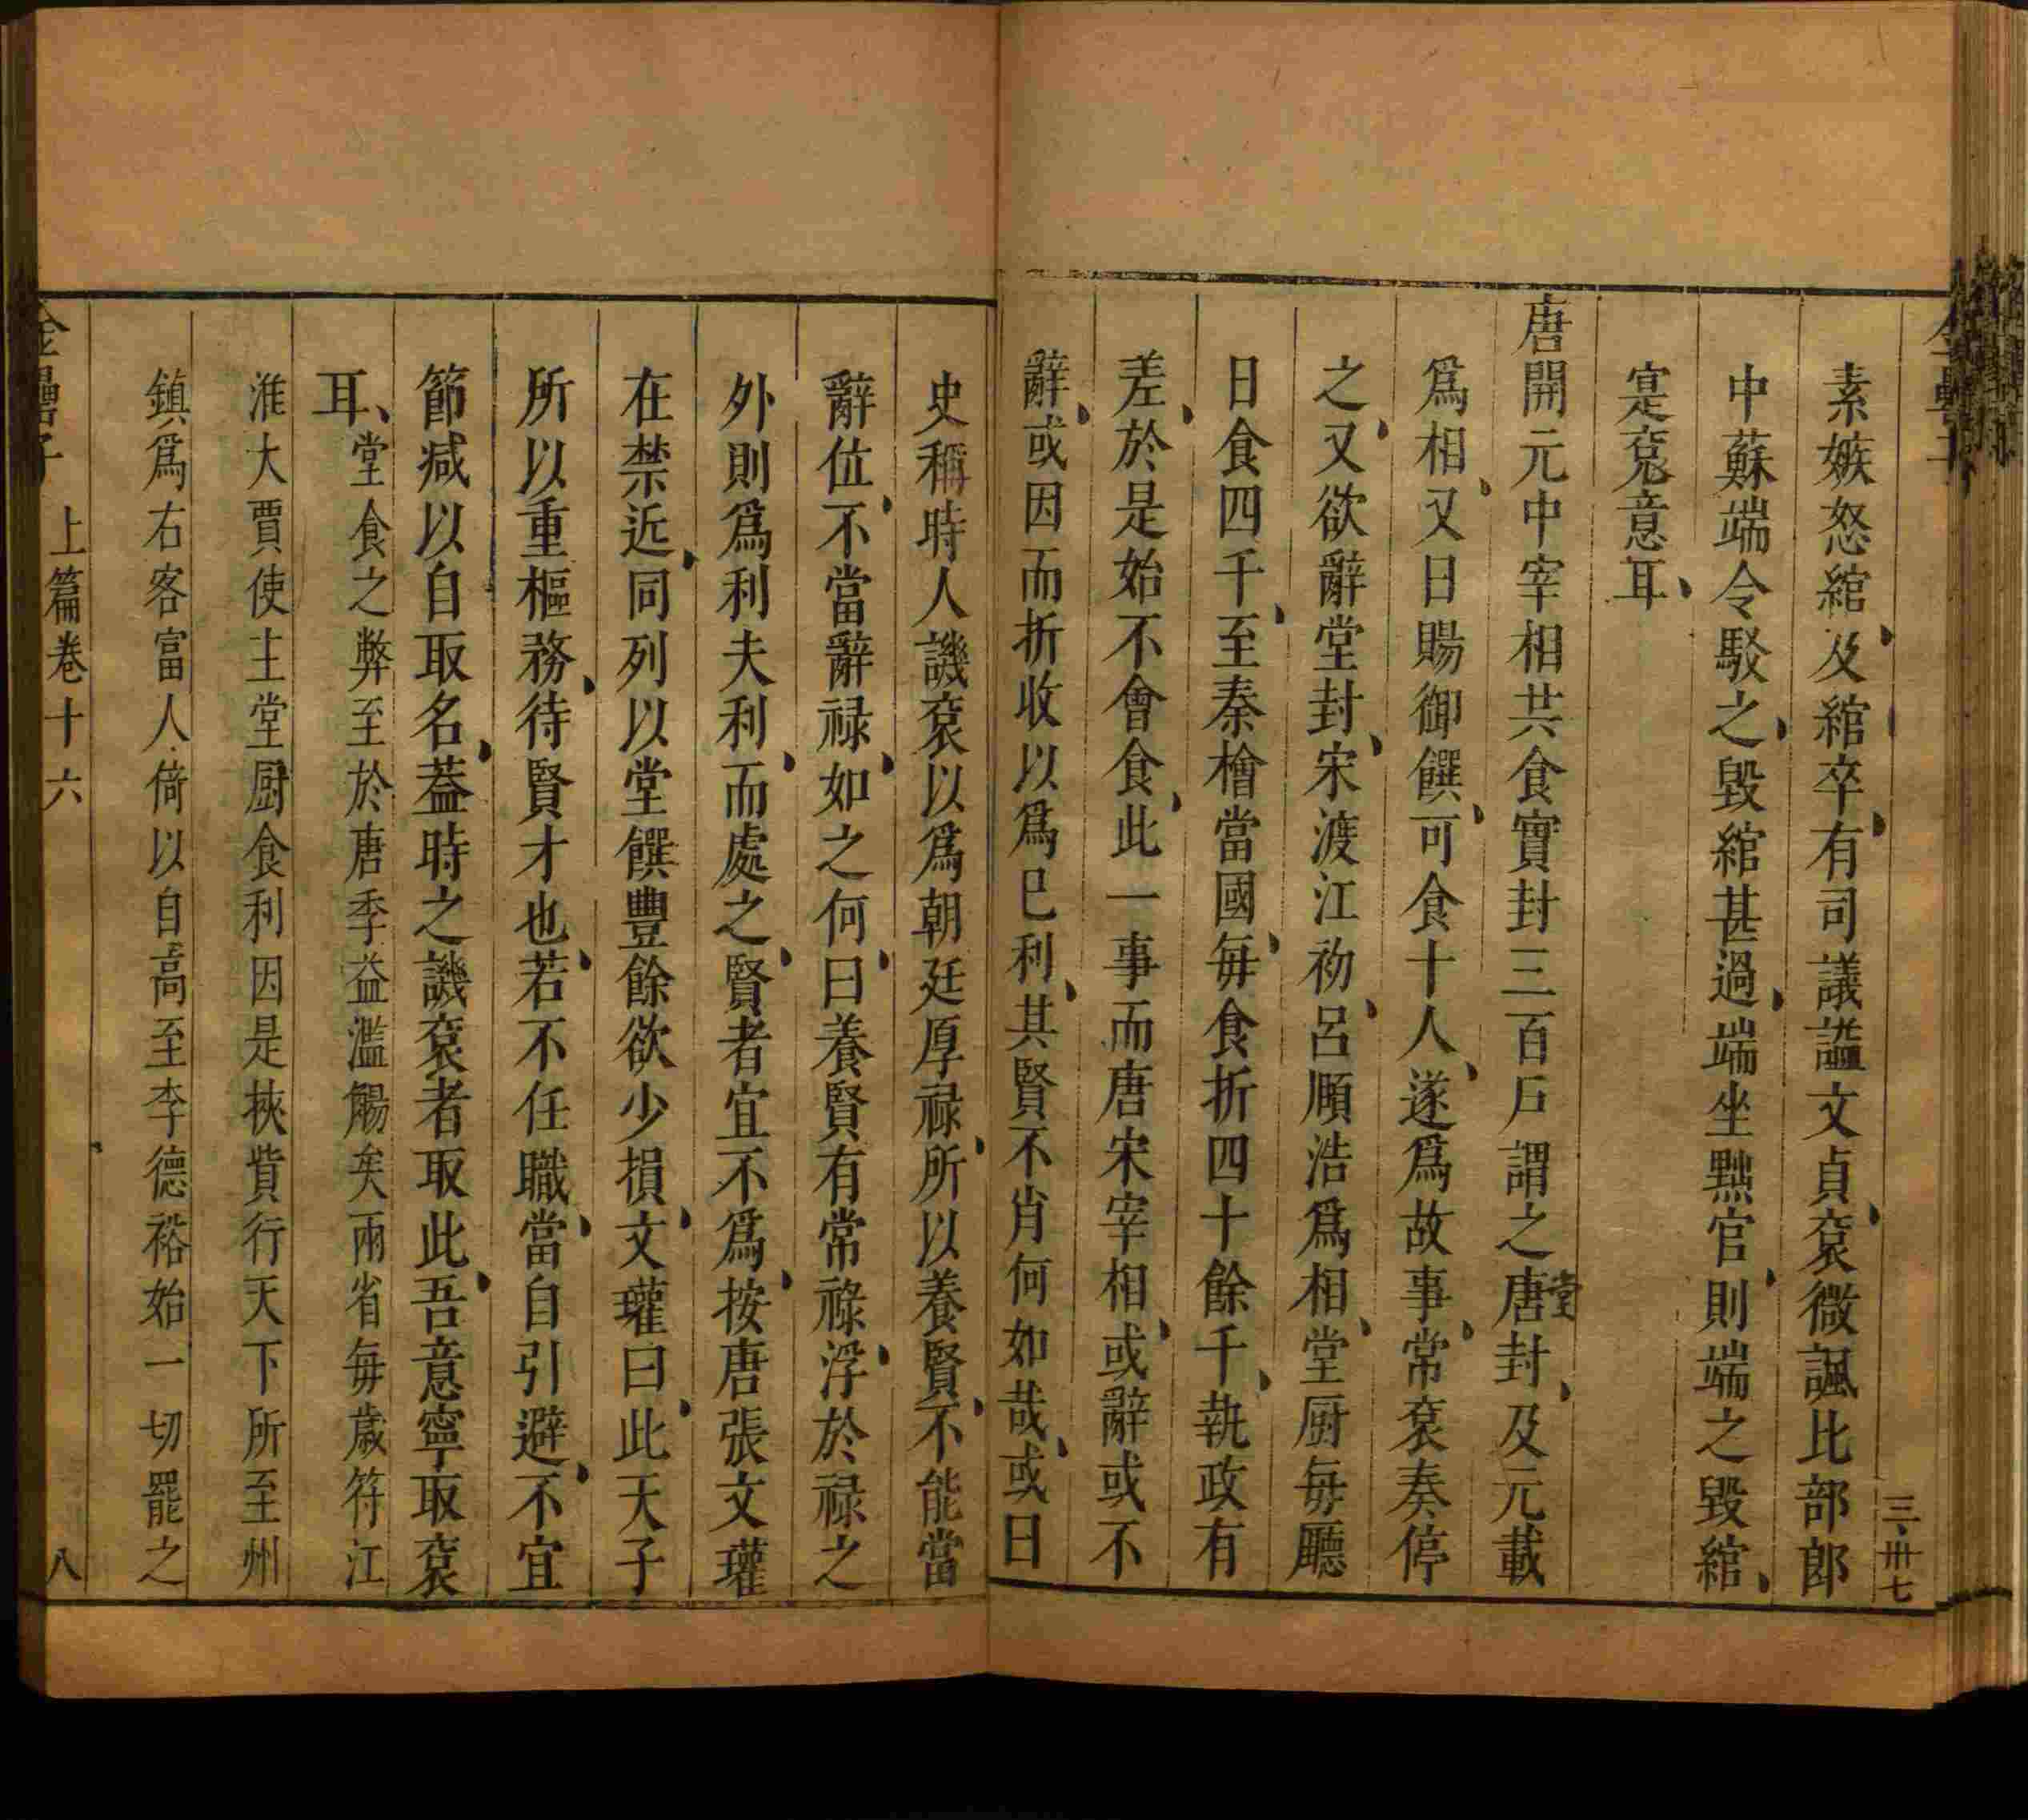 三卅七
素嫉怒綰及綰卒有司議謚文貞袞微諷比部郎
中蘇端令駁之毀綰甚過端坐黜官則端之毀綰
寔袞意耳
唐開元中宰相共食實封三百戶謂之唐封及元載
堂
爲相又日賜御饌可食十人遂爲故事常袞奏停
之又欲辭堂封宋渡江初呂順浩爲相堂厨每廳
日食四千至秦檜當國每食折四十餘千執政有
差於是始不會食此一事而唐宋宰相或辭或不
辭或因而折收以爲已利其賢不肖何如哉或曰
史稱時人譏袞以爲朝廷厚祿所以養賢不能當
辭位不當辭祿如之何曰養賢有常祿浮於祿之
外則爲利夫利而處之賢者宜不爲按唐張文瓘
在禁近同列以堂饌豐餘欲少損文瓘曰此天子
所以重樞務待賢才也若不任職當自引避不宜
節減以自取名葢時之譏袞者取此吾意寧取袞
耳堂食之弊至於唐季益濫觴矣兩省每歲符江
淮大賈使主堂厨食利因是挾貲行天下所至州
鎮爲右客富人倚以自高至李德裕始一切罷之
金罍子
上篇卷十六
八